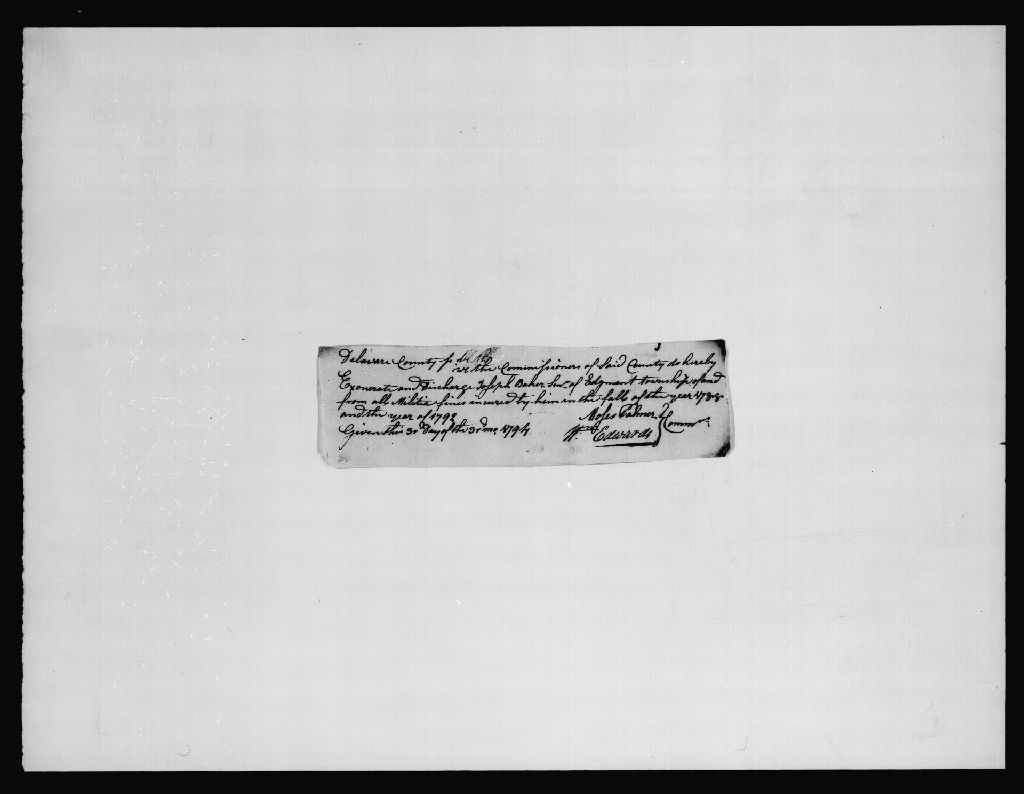 Delaware County ss
We the Commissioners of Said County do hereby
Exonerate and Discharge Joseph Baker Senr of Edgmont township of and
from all Militia fines incured by him in the falls of the year 1788
and the year of 1792
Given this 3rd Day of the 3rd mo 1794
Moses Palmer
Wm Edwards
Commrs